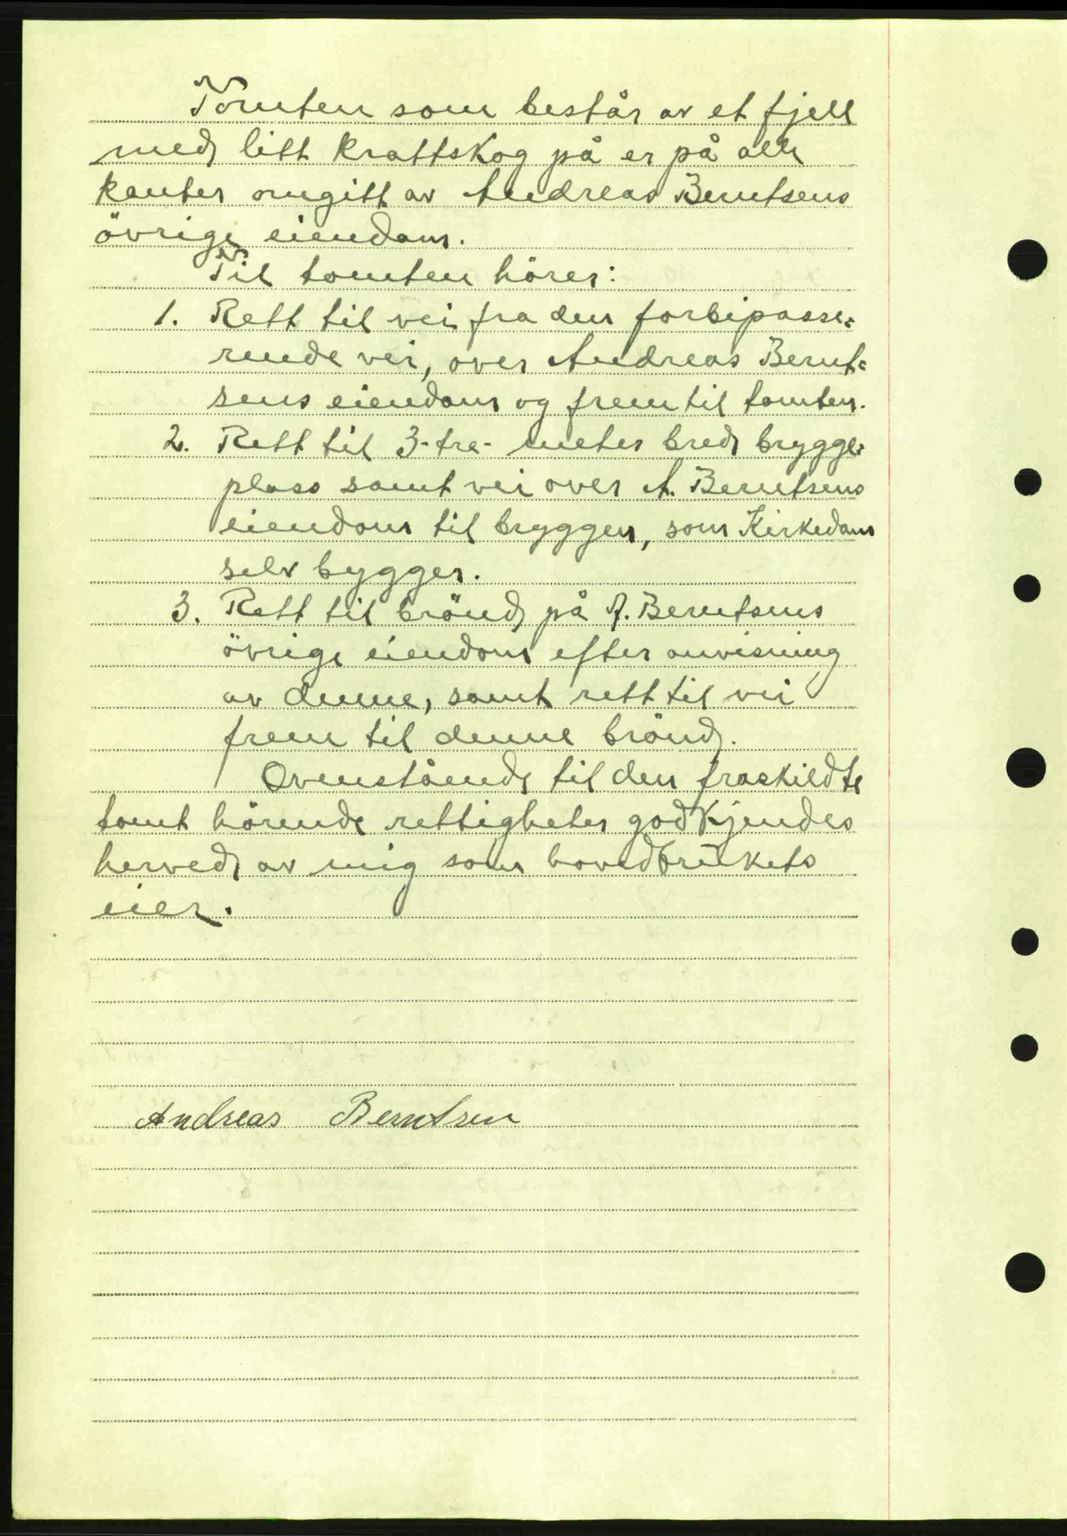 Tomten som består av et fjell
med litt krattskog på er på alle
kanter omgitt av Andreas Berntsens
övrige eiendom.
Til tomten hörer:
1. Rett til vei fra den forbipasse=
rende vei, over Andreas Bernt=
sens eiendom og frem til tomten.
2. Rett til 3-tre- meter bred brygge=
plass samt vei over A. Berntsens
eiendom til bryggen, som Kirkedam
selv bygger.
3. Rett til brönd på A. Berntsens
övrige eiendom efter anvisning
av denne, samt rett til vei
frem til denne brönd.
Ovenstående til den fraskildte
tomt hörende rettigheter godkjendes
herved av mig som hovedbrukets
eier.
Andreas Berntsen